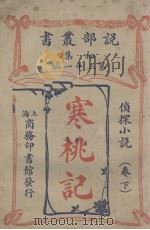 說部叢書
偵探小說
(卷下)
寒桃記
上海
商務印書館發行